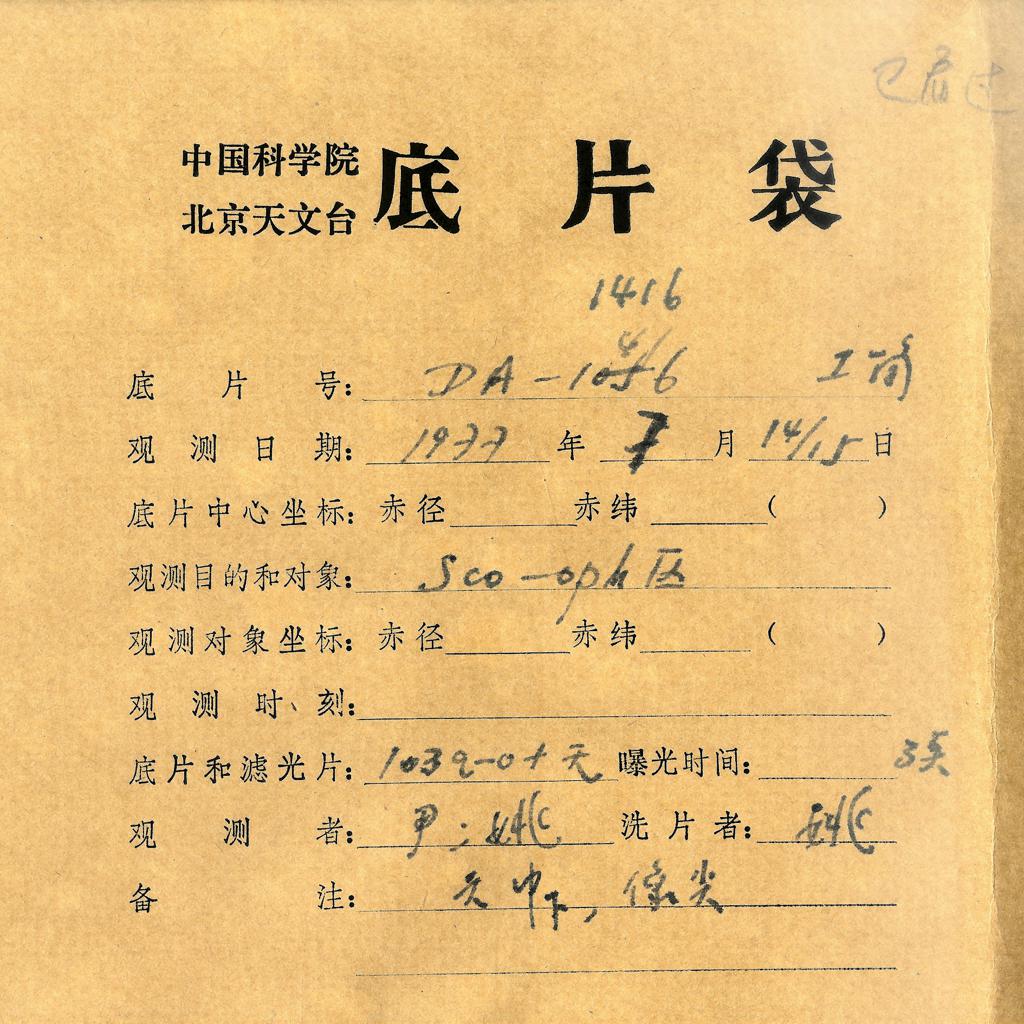 已看过
中国科学院
北京天文台
底片袋
1416
底片号: DA-1056
观测日期: 1977年7月14/15日
底片中心坐标: 赤径 赤纬 ( )
观测目的和对象: Sco-oph区
观测对象坐标: 赤径 赤纬 ( )
观测时刻:
底片和滤光片: 103a-O+无 曝光时间:
观测者: 姚 洗片者: 姚
备注: 像尖